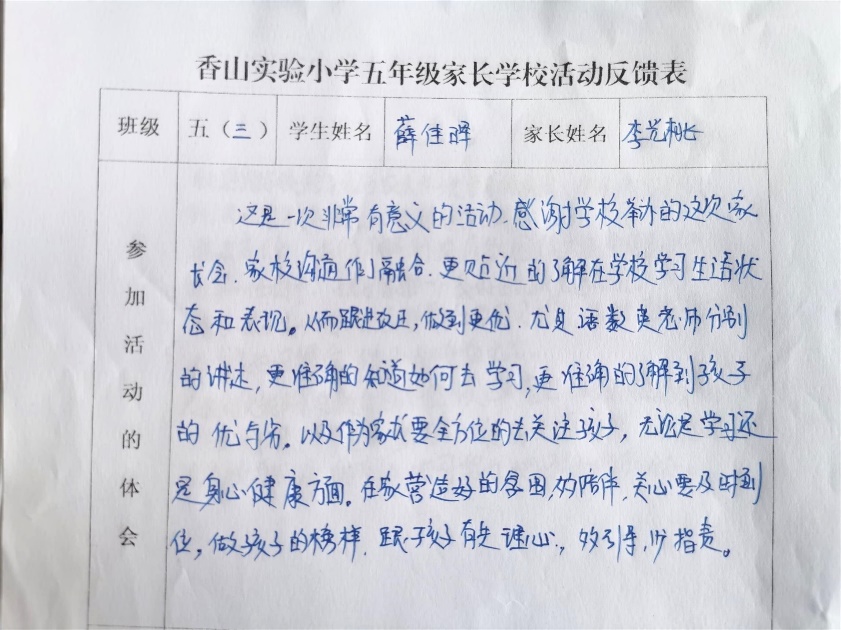 香山实验小学五年级家长学校活动反馈表
班级 五（三） 学生姓名 薛佳晔 家长姓名 李艳桃
参加活动的体会
这是一次非常有意义的活动.感谢学校举办的这次家
长会.家校沟通作融合.更贴近的了解在学校学习生活状
态和表现。从而跟进改正,做到更优.尤其语数英老师分别
的讲述,更准确的知道如何去学习,更准确的了解到孩子
的优与劣。以及作为家长要全方位的去关注孩子,无论是学习还
是身心健康方面。在家营造好的氛围,多陪伴.关心要及时到
位。做孩子的榜样.跟孩子有耐心.,多引导,少指责。